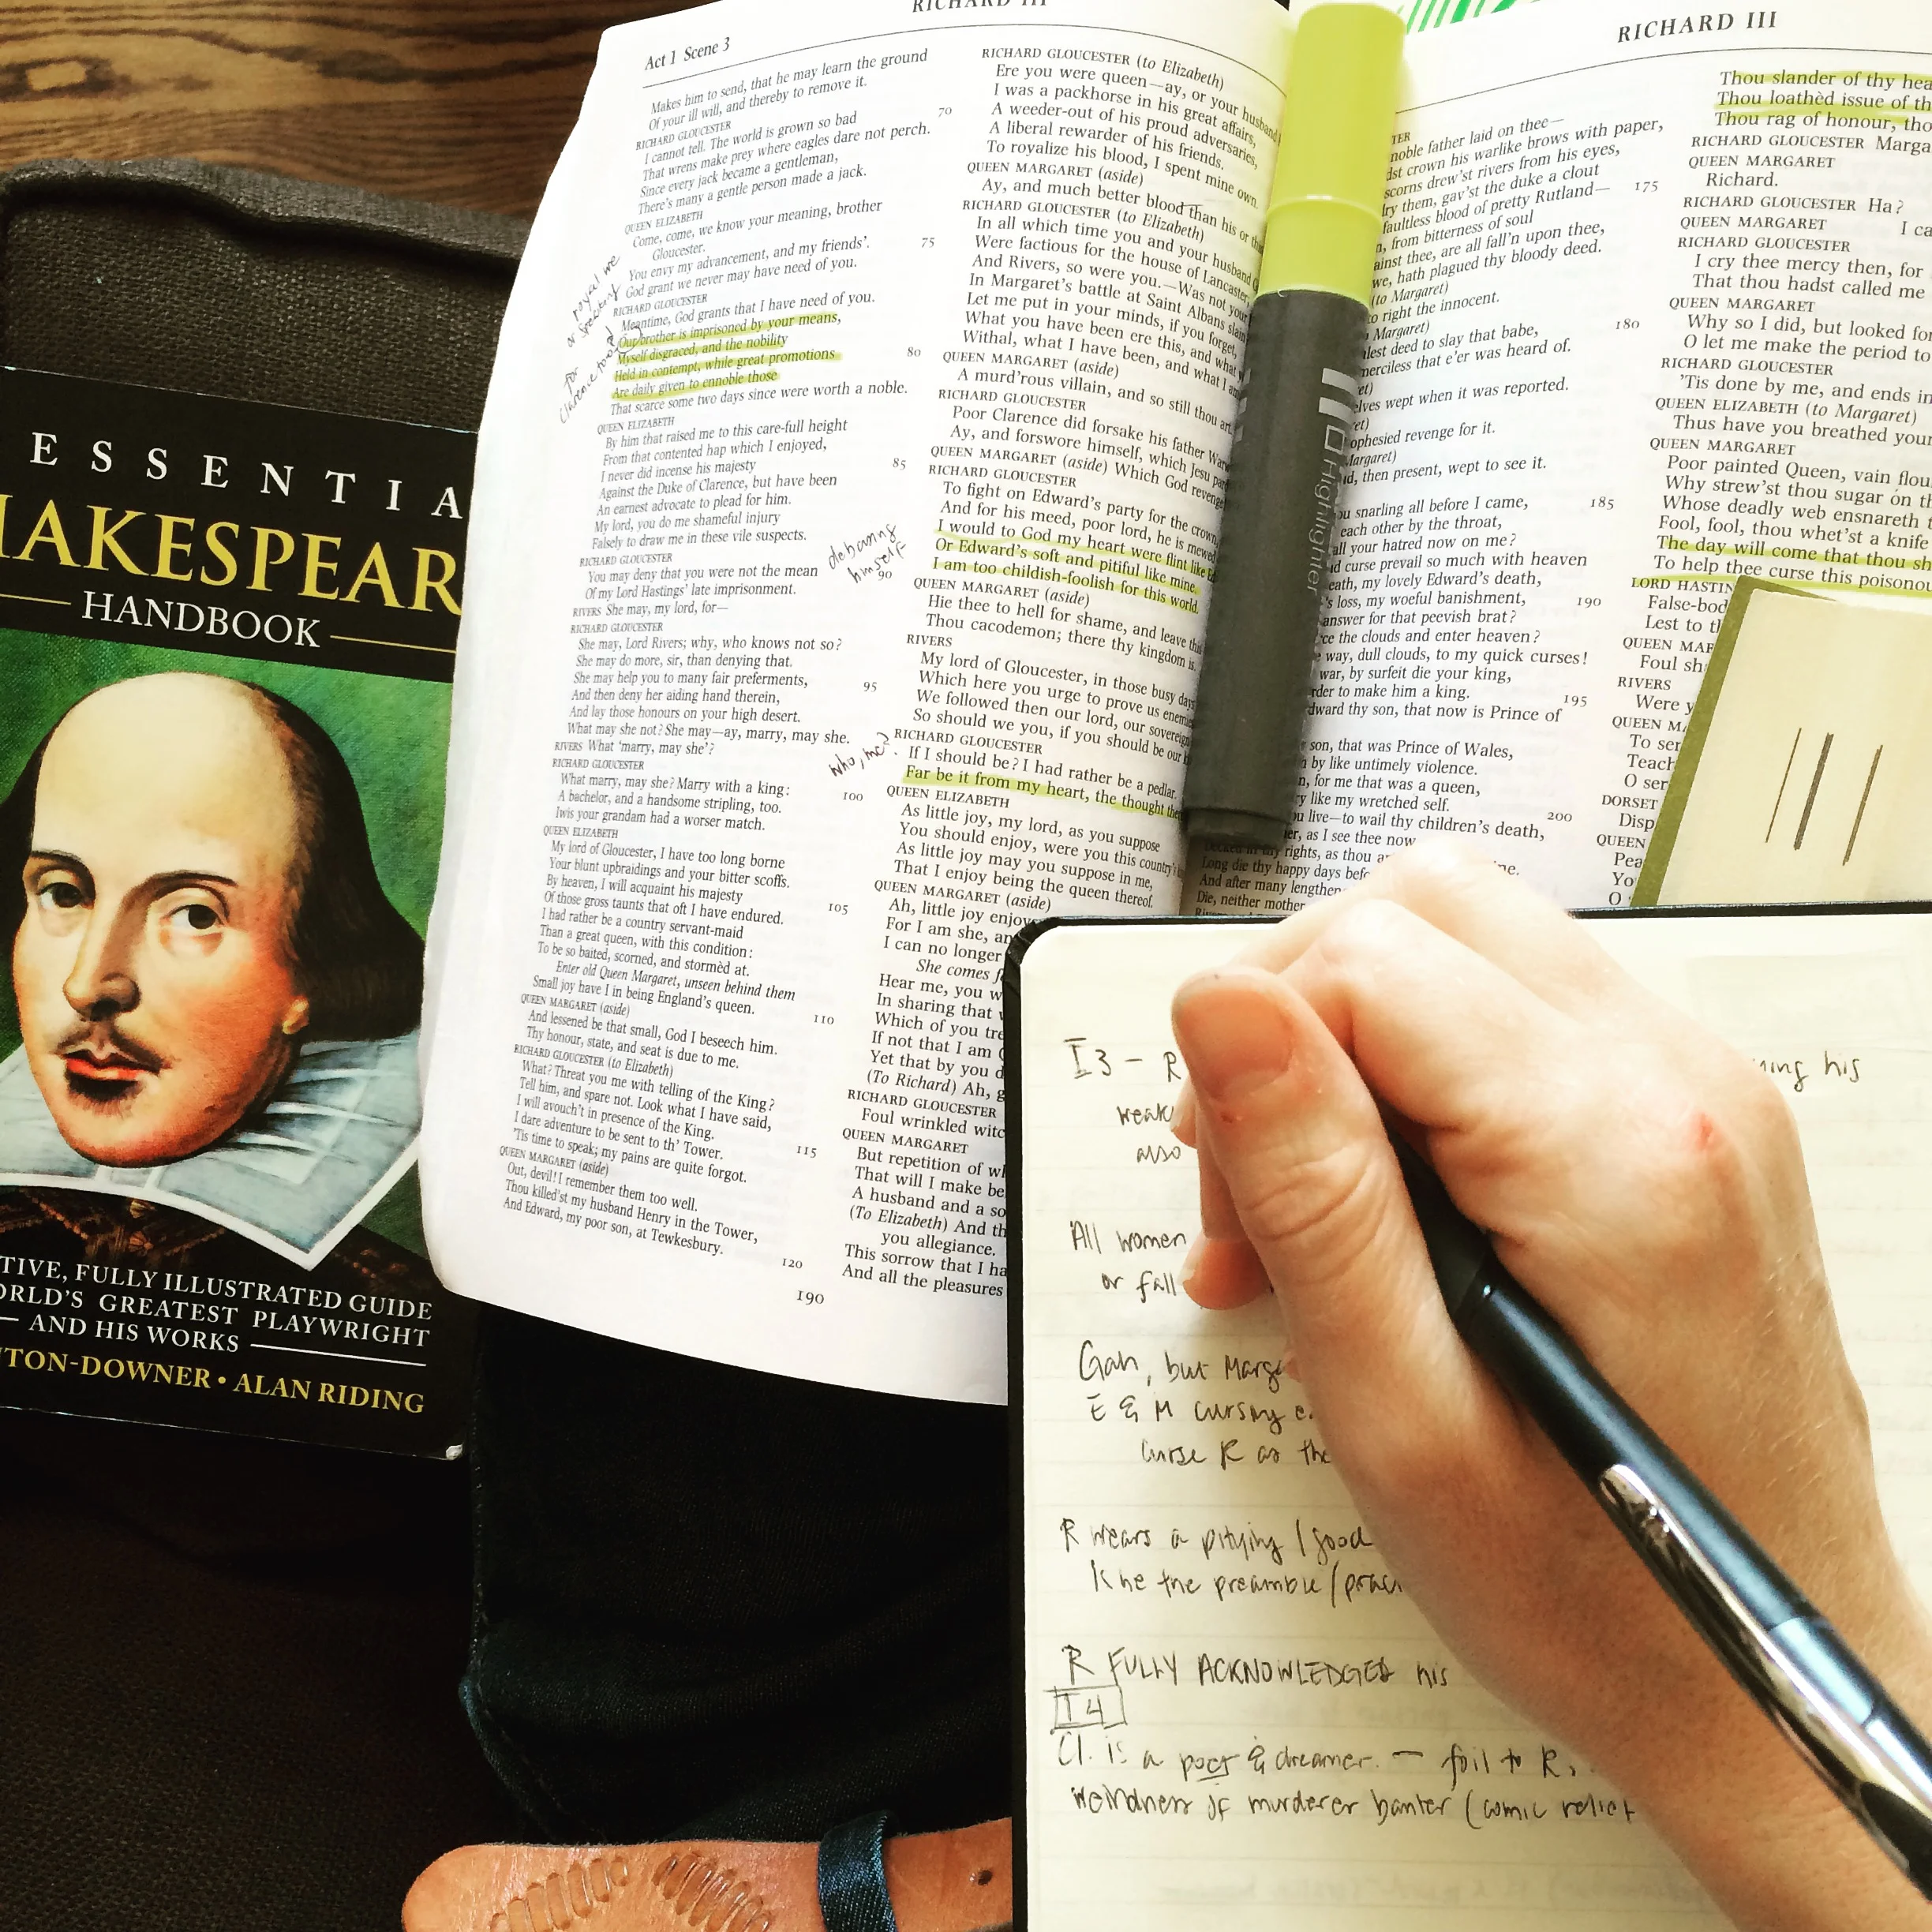 ESSENTIA
HAKESPEAR
HANDBOOK
TIVE, FULLY ILLUSTRATED GUIDE
ORLD'S GREATEST PLAYWRIGHT
AND HIS WORKS
TON-DOWNER • ALAN RIDING
RICHARD III
Act 1 Scene 3
Makes him to send, that he may learn the ground
Of your ill will, and thereby to remove it.
RICHARD GLOUCESTER
I cannot tell. The world is grown so bad
70
That wrens make prey where eagles dare not perch.
Since every jack became a gentleman,
There's many a gentle person made a jack.
QUEEN ELIZABETH
Come, come, we know your meaning, brother
Gloucester.
You envy my advancement, and my friends'.
75
God grant we never may have need of you.
RICHARD GLOUCESTER
Meantime, God grants that I have need of you.
Our brother is imprisoned by your means,
Myself disgraced, and the nobility
Held in contempt, while great promotions
80
Are daily given to ennoble those
That scarce some two days since were worth a noble.
QUEEN ELIZABETH
By him that raised me to this care-full height
From that contented hap which I enjoyed,
I never did incense his majesty
85
Against the Duke of Clarence, but have been
An earnest advocate to plead for him.
My lord, you do me shameful injury
Falsely to draw me in these vile suspects.
RICHARD GLOUCESTER
You may deny that you were not the mean
90
Of my Lord Hastings' late imprisonment.
RIVERS She may, my lord, for—
RICHARD GLOUCESTER
She may, Lord Rivers; why, who knows not so?
She may do more, sir, than denying that.
She may help you to many fair preferments,
95
And then deny her aiding hand therein,
And lay those honours on your high desert.
What may she not? She may—ay, marry, may she.
RIVERS What 'marry, may she'?
RICHARD GLOUCESTER
What marry, may she? Marry with a king:
100
A bachelor, and a handsome stripling, too.
Iwis your grandam had a worser match.
QUEEN ELIZABETH
My lord of Gloucester, I have too long borne
Your blunt upbraidings and your bitter scoffs.
By heaven, I will acquaint his majesty
105
Of those gross taunts that oft I have endured.
I had rather be a country servant-maid
Than a great queen, with this condition:
To be so baited, scorned, and stormèd at.
Enter old Queen Margaret, unseen behind them
Small joy have I in being England's queen.
110
QUEEN MARGARET (aside)
And lessened be that small, God I beseech him.
Thy honour, state, and seat is due to me.
RICHARD GLOUCESTER (to Elizabeth)
What? Threat you me with telling of the King?
Tell him, and spare not. Look what I have said,
I will avouch't in presence of the King.
115
I dare adventure to be sent to th' Tower.
'Tis time to speak; my pains are quite forgot.
QUEEN MARGARET (aside)
Out, devil! I remember them too well.
Thou killed'st my husband Henry in the Tower,
And Edward, my poor son, at Tewkesbury.
120
190
or royal we
speaking
for
Clarence too?
debasing
himself
who, me?
RICHARD GLOUCESTER (to Elizabeth)
Ere you were queen—ay, or your husband
I was a packhorse in his great affairs,
A weeder-out of his proud adversaries,
A liberal rewarder of his friends.
To royalize his blood, I spent mine own.
QUEEN MARGARET (aside)
Ay, and much better blood than his or
RICHARD GLOUCESTER (to Elizabeth)
In all which time you and your husband
Were factious for the house of Lancaster;
And Rivers, so were you.—Was not your
In Margaret's battle at Saint Albans slain
Let me put in your minds, if you forget,
What you have been ere this, and what
Withal, what I have been, and what I am
QUEEN MARGARET (aside)
A murd'rous villain, and so still thou art.
RICHARD GLOUCESTER
Poor Clarence did forsake his father War
Ay, and forswore himself, which Jesu par
QUEEN MARGARET (aside) Which God revenge
RICHARD GLOUCESTER
To fight on Edward's party for the crown,
And for his meed, poor lord, he is mewed
I would to God my heart were flint like
Or Edward's soft and pitiful like mine.
I am too childish-foolish for this world.
QUEEN MARGARET (aside)
Hie thee to hell for shame, and leave
Thou cacodemon; there thy kingdom is.
RIVERS
My lord of Gloucester, in those busy days
Which here you urge to prove us enemies
We followed then our lord, our sovereign
So should we you, if you should be our
RICHARD GLOUCESTER
If I should be? I had rather be a pedlar.
Far be it from my heart, the thought
QUEEN ELIZABETH
As little joy, my lord, as you suppose
You should enjoy, were you this country's
As little joy may you suppose in me,
That I enjoy being the queen thereof.
QUEEN MARGARET (aside)
Ah, little joy enjoys
For I am she, an
I can no longer
She comes f
Hear me, you w
In sharing that
Which of you tre
If not that I am
Yet that by you d
(To Richard) Ah, g
RICHARD GLOUCESTER
Foul wrinkled witc
QUEEN MARGARET
But repetition of w
That will I make be
A husband and a so
(To Elizabeth) And th
you allegiance.
This sorrow that I ha
And all the pleasures
Highlighter
RICHARD III
noble father laid on thee—
dst crown his warlike brows with paper,
scorns drew'st rivers from his eyes,
ry them, gav'st the duke a clout
175
faultless blood of pretty Rutland—
, from bitterness of soul
ainst thee, are all fall'n upon thee,
we, hath plagued thy bloody deed.
(to Margaret)
o right the innocent.
180
Margaret)
lest deed to slay that babe,
merciless that e'er was heard of.
elves wept when it was reported.
ophesied revenge for it.
Margaret)
d, then present, wept to see it.
ou snarling all before I came,
185
each other by the throat,
all your hatred now on me?
d curse prevail so much with heaven
eath, my lovely Edward's death,
's loss, my woeful banishment,
190
answer for that peevish brat?
ce the clouds and enter heaven?
way, dull clouds, to my quick curses!
war, by surfeit die your king,
rder to make him a king.
195
dward thy son, that now is Prince of
son, that was Prince of Wales,
by like untimely violence.
n, for me that was a queen,
y like my wretched self.
200
u live—to wail thy children's death,
er, as I see thee now
rights, as thou
Long die thy happy days befo
And after many lengthen
Die, neither mother
Thou slander of thy hea
Thou loathèd issue of th
Thou rag of honour, tho
RICHARD GLOUCESTER Marga
QUEEN MARGARET
Richard.
RICHARD GLOUCESTER Ha?
QUEEN MARGARET I ca
RICHARD GLOUCESTER
I cry thee mercy then, for
That thou hadst called me
QUEEN MARGARET
Why so I did, but looked for
O let me make the period to
RICHARD GLOUCESTER
'Tis done by me, and ends in
QUEEN ELIZABETH (to Margaret)
Thus have you breathed your
QUEEN MARGARET
Poor painted Queen, vain flou
Why strew'st thou sugar on th
Whose deadly web ensnareth t
Fool, fool, thou whet'st a knife
The day will come that thou sh
To help thee curse this poisonou
LORD HASTIN
False-bod
Lest to t
QUEEN MAR
Foul sh
RIVERS
Were y
QUEEN M
To ser
Teach
O ser
DORSET
Disp
QUEEN
Pea
Yo
O
I3 – R
ning his
weak
also
All women
or fall
Gah, but Marg
E & M cursing e
curse R as the
R wears a pitying / good
like the preamble / prac
R FULLY ACKNOWLEDGES his
I4
Cl. is a poet & dreamer. — foil to R.
weirdness of murderer banter (comic relief